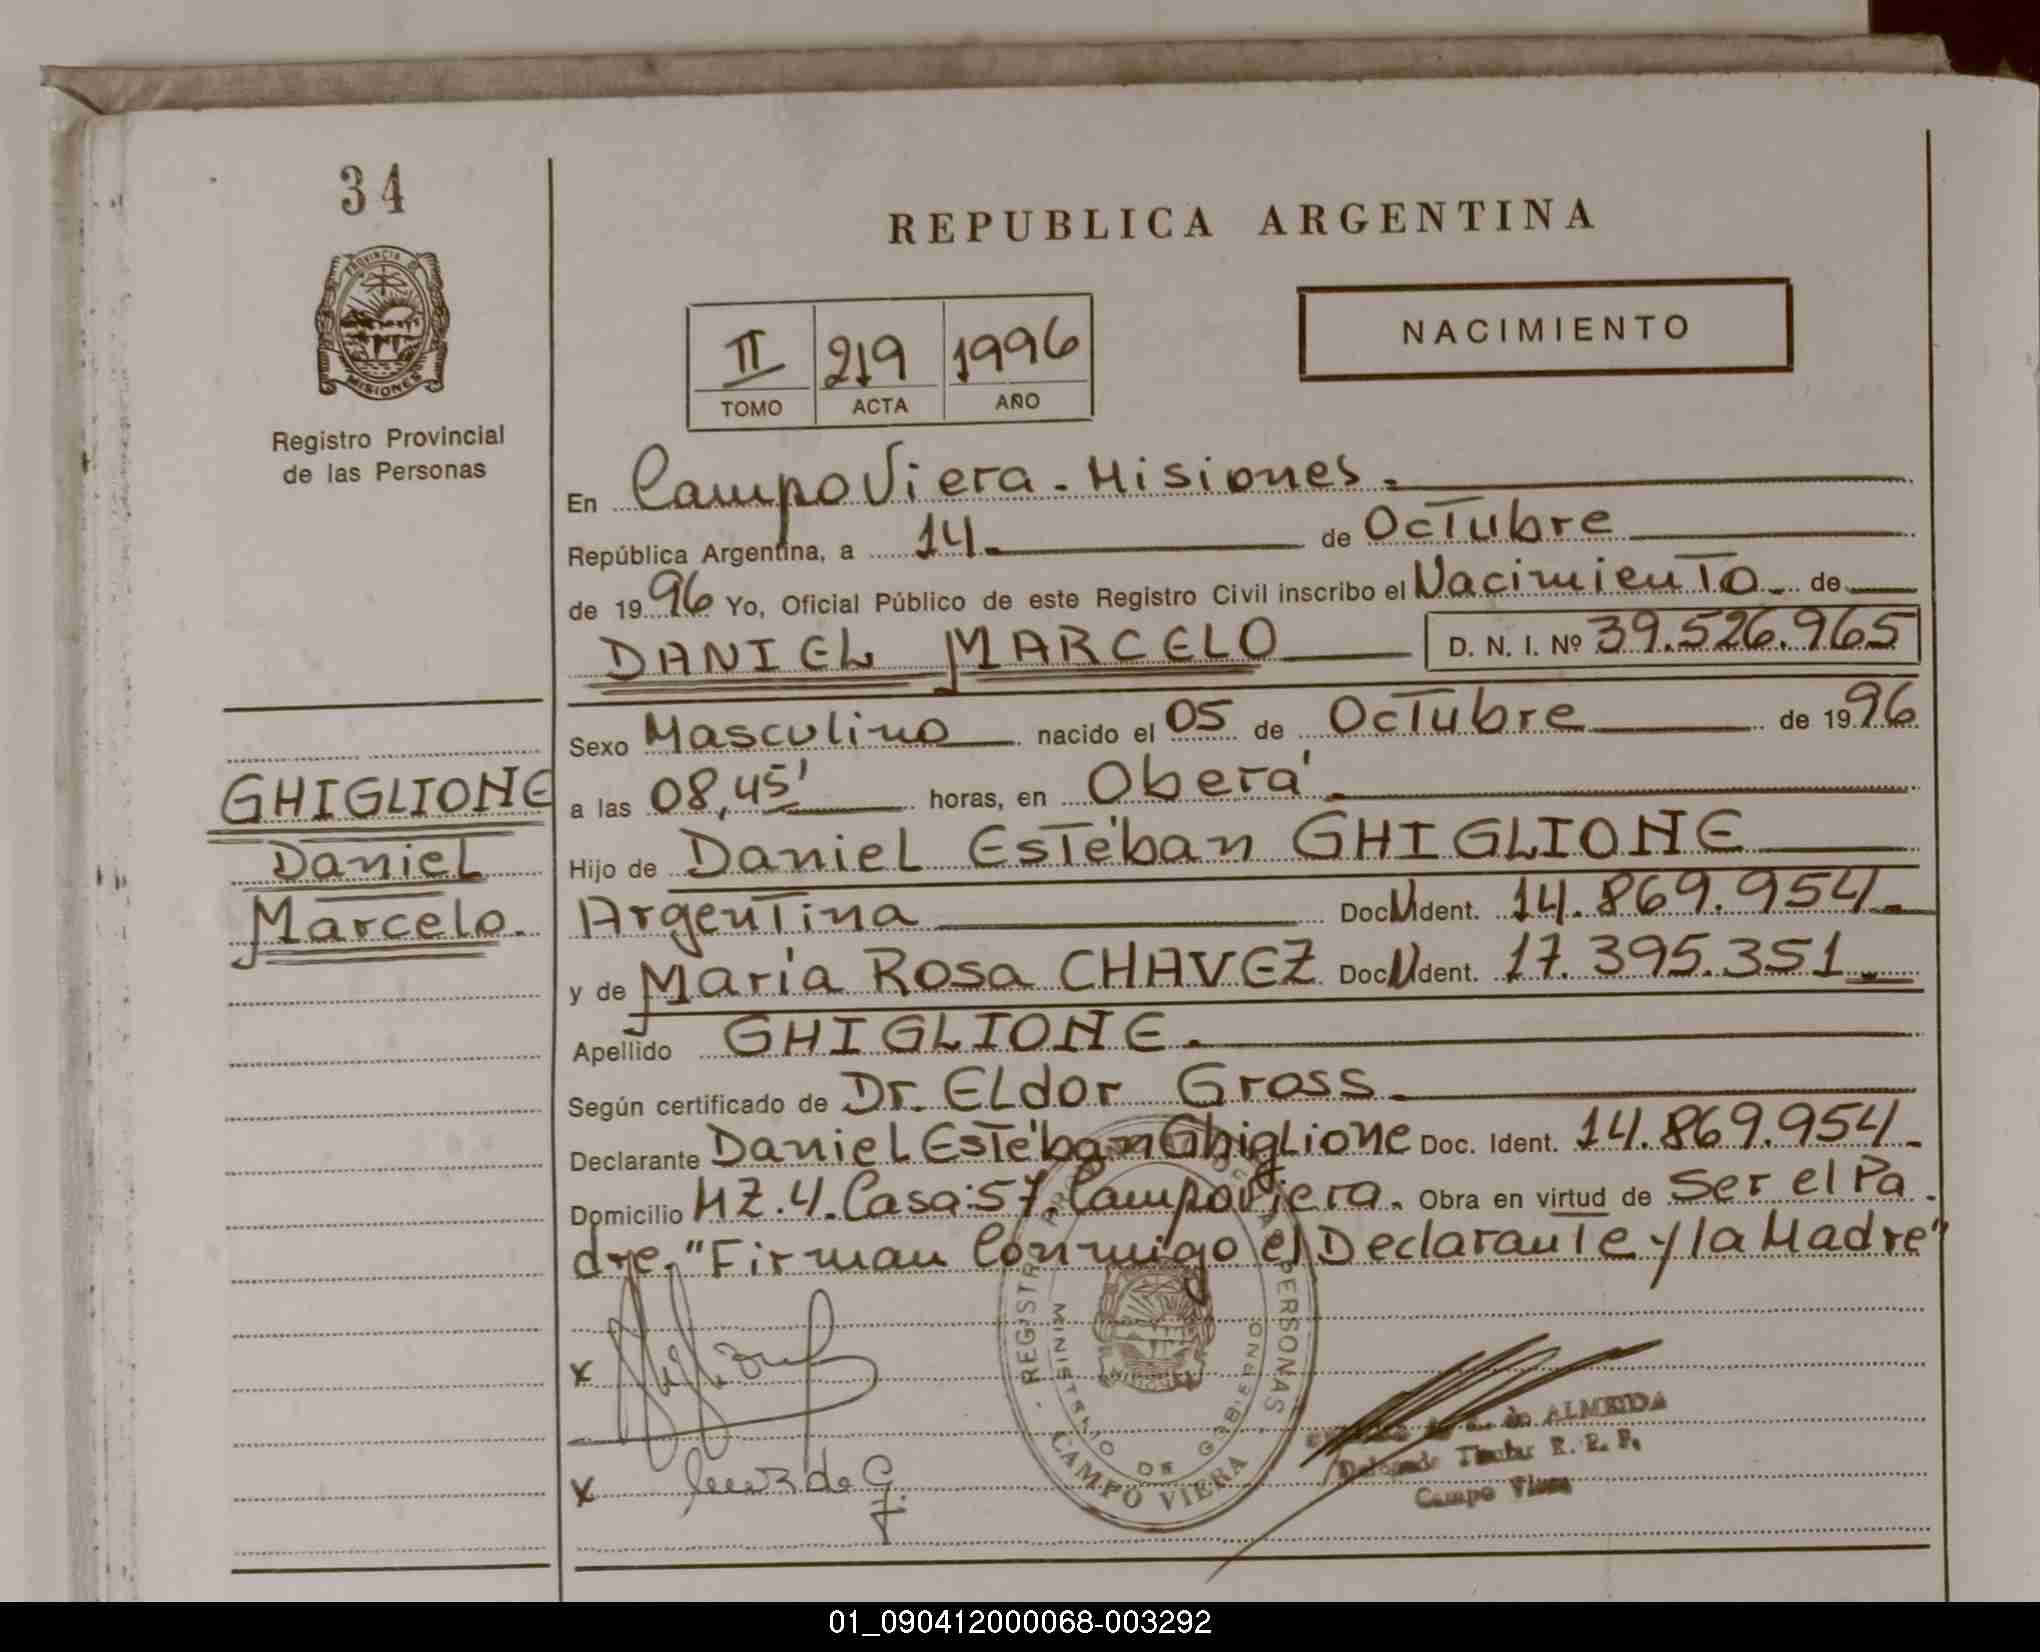 34
PROVINCIA DE
MISIONES
Registro Provincial
de las Personas
REPUBLICA ARGENTINA
II 219 1996
TOMO ACTA AÑO
NACIMIENTO
En Campo Viera - Misiones.
República Argentina, a 14. de Octubre
de 1996 Yo, Oficial Público de este Registro Civil inscribo el Nacimiento de
DANIEL MARCELO D. N. I. Nº 39.526.965
Sexo Masculino nacido el 05 de Octubre de 1996
a las 08,45' horas, en Oberá.
Hijo de Daniel Estéban GHIGLIONE
Argentina Doc N Ident. 14.869.954.
y de María Rosa CHAVEZ Doc N Ident. 17.395.351.
Apellido GHIGLIONE.
Según certificado de Dr. Eldor Gross.
Declarante Daniel Estéban Ghiglione Doc. Ident. 14.869.954.
Domicilio MZ.4. Casa:57. Campo Viera. Obra en virtud de Ser el Pa
dre. "Firman Conmigo el Declarante y la Madre"
GHIGLIONE
Daniel
Marcelo.
x
x de G.
REGISTRO PERSONAS
MINISTERIO DE GOBIERNO
CAMPO VIERA
de ALMEIDA
Delegado Titular R. P. P.
Campo Viera
01_090412000068-003292